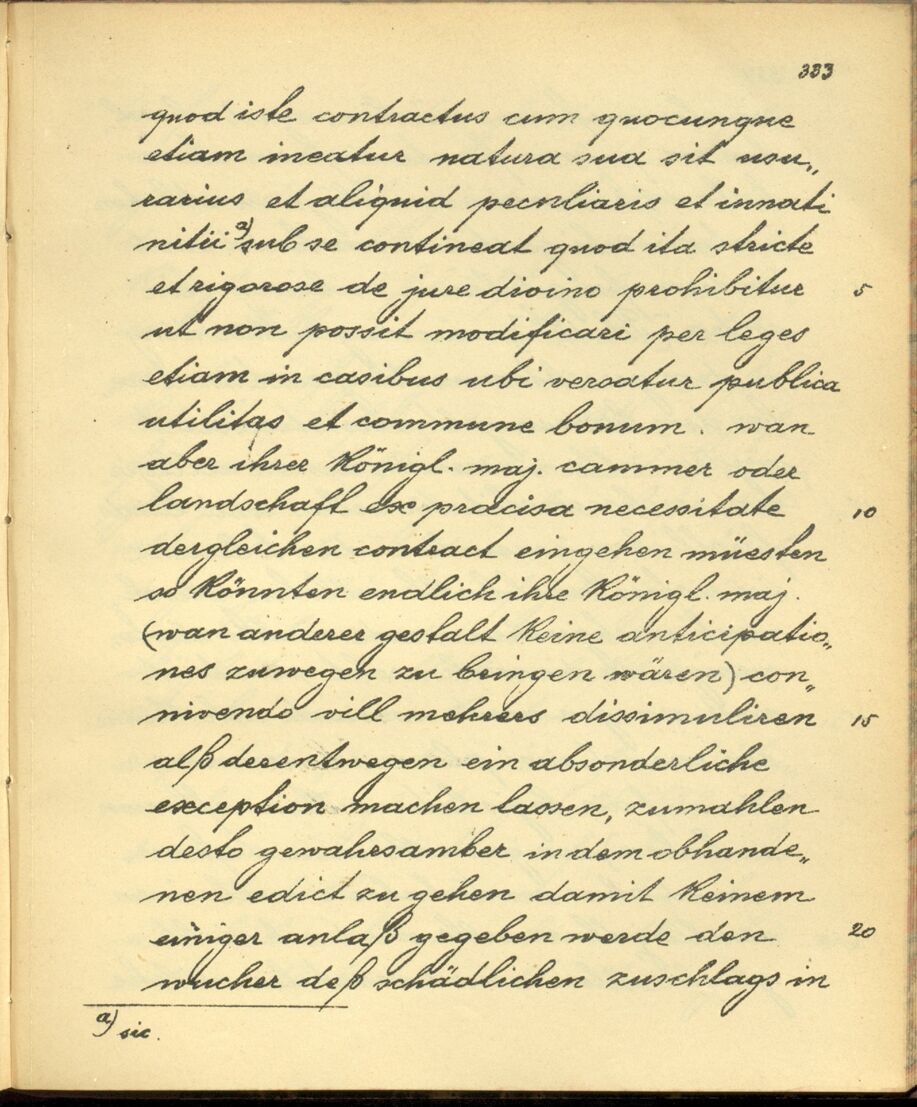 333
quod iste contractus cum quocunque
etiam ineatur natura sua sit usu„
rarius et aliquid peculiaris et innati
nitii a) sub se contineat quod ita stricte
et rigorose de jure divino prohibitur 5
ut non possit modificari per leges
etiam in casibus ubi versatur publica
utilitas et commune bonum. wan
aber ihrer Königl. maj. cammer oder
landschaft ex praecisa necessitate 10
dergleichen contract eingehen müesten
so könnten endlich ihre Königl. maj.
(wan anderer gestalt keine anticipatio„
nes zuwegen zu bringen wären) con„
nivendo vill mehrers dissimuliren 15
alß derentwegen ein absonderliche
exception machen lassen, zumahlen
desto gewahrsamber in dem obhande„
nen edict zu gehen damit keinem
einiger anlaß gegeben werde den 20
wucher deß schädlichen zuschlags in
a) sic.